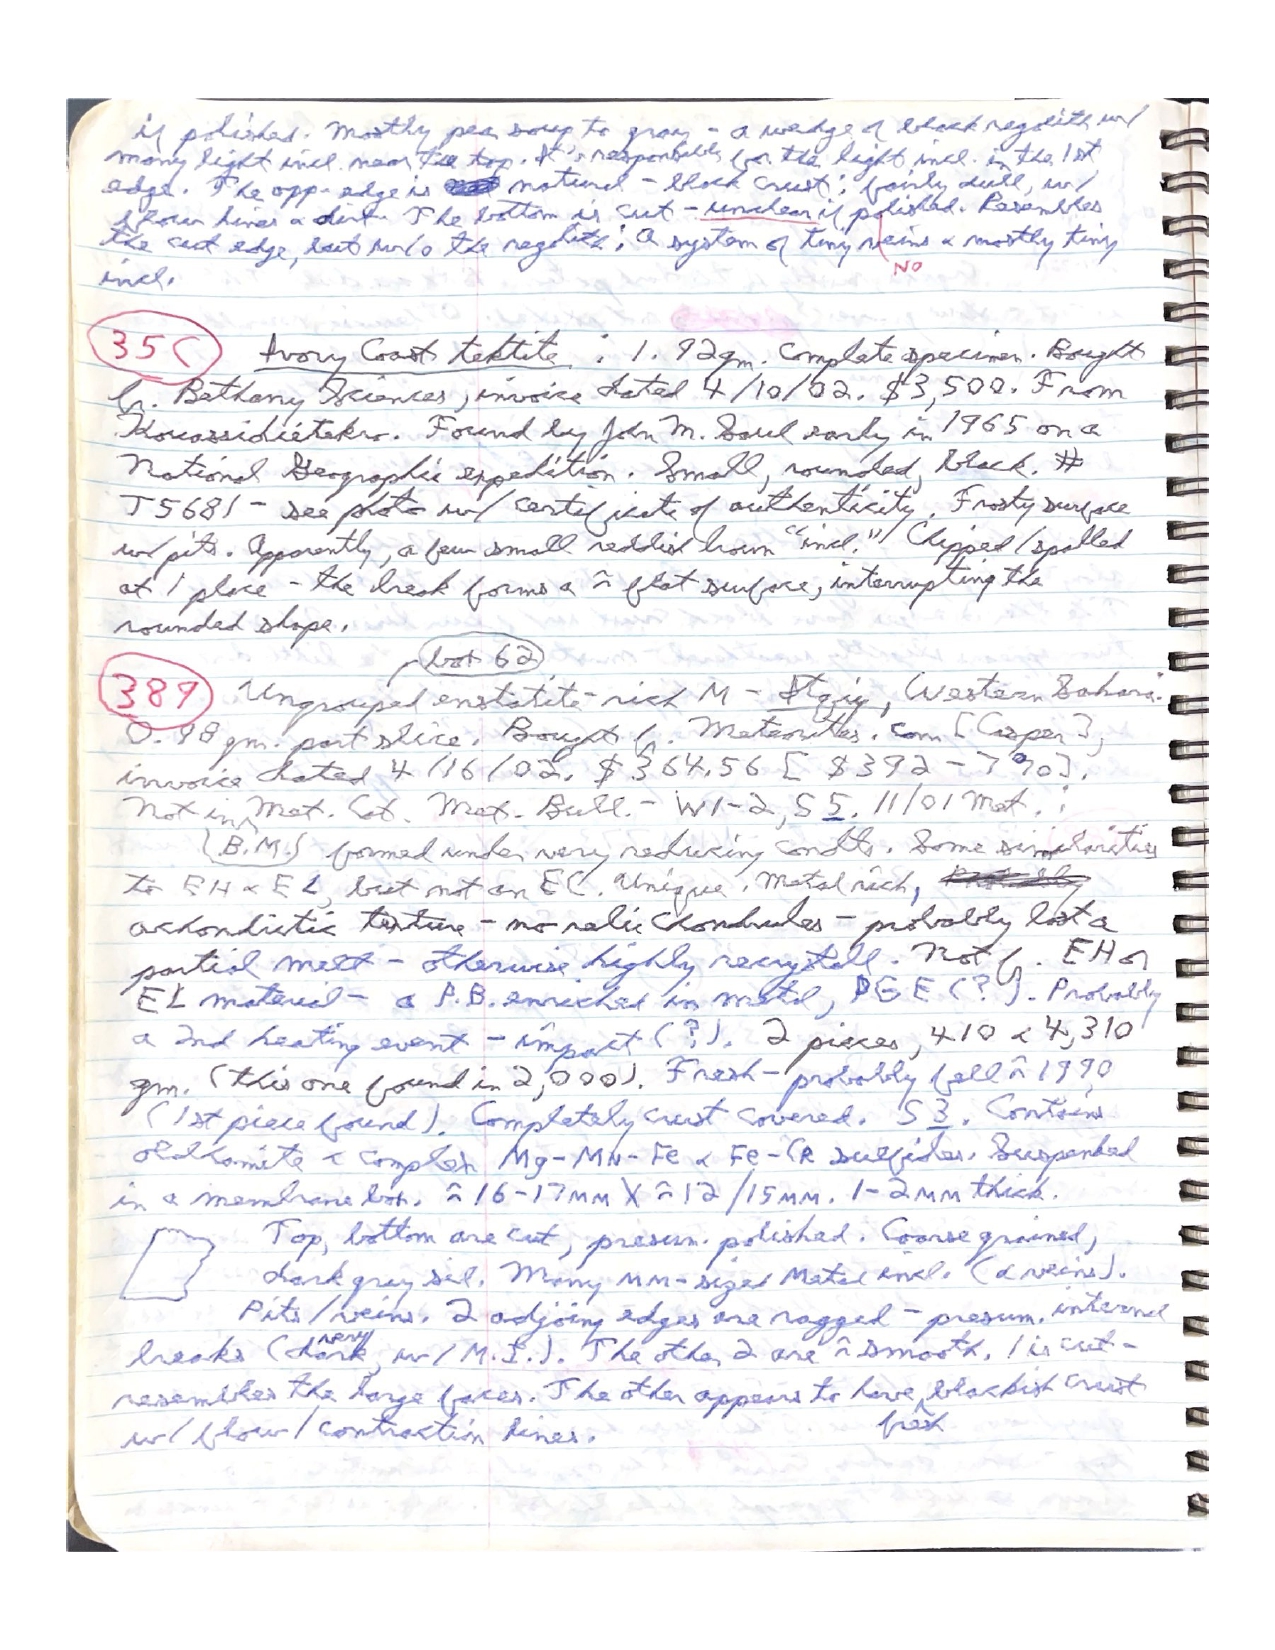 if polished. Mostly pea soup to gray - a wedge of black regolith w/
many light incl. near the top. It's responsible for the light incl. in the 1st
edge. The opp. edge is natural - black crust; fairly dull, w/
flow lines & dirt. The bottom is cut - unclear if polished. Resembles
the cut edge, but w/o the regolith; a system of tiny veins & mostly tiny
NO
incl.
35C Ivory Coast tektite: 1.92gm. Complete specimen. Bought
fr. Bethany Sciences, invoice dated 4/10/02. $3,500. From
Kouassidietekro. Found by John M. Saul early in 1965 on a
National Geographic expedition. Small, rounded, black. #
J5681 - see photo w/ certificate of authenticity. Frosty surface
w/ pits. Apparently, a few small reddish brown "incl." Chipped/spalled
at 1 place - the break forms a ≈ flat surface, interrupting the
rounded shape.
bot 62
389 Ungrouped enstatite-rich M - Itqiy, Western Sahara.
0.98 gm. part slice. Bought f. Meteorites.com [Casper],
invoice dated 4/16/02. $364.56 [$392 - 7%].
Not in Met. Cat. Met. Bull. - W1-2, S5. 11/01 Met.:
(B.M.) formed under very reducing condts. Some similarities
to EH & EL, but not an EC. Unique. Metal rich,
achondritic texture - no relic chondrules - probably lost a
partial melt - otherwise highly recrystall. Not f. EH or
EL material - a P.B. enriched in metal, PGE (?). Probably
a 2nd heating event - impact (?). 2 pieces, 410 & 4,310
gm. (this one found in 2,000). Fresh - probably fell ≈ 1990
(1st piece found). Completely crust covered. S3. Contains
oldhamite & complex Mg-Mn-Fe & Fe-CR sulfides. Suspended
in a membrane box. ≈ 16-17MM X ≈ 12/15MM. 1-2MM thick.
Top, bottom are cut, presum. polished. Coarse grained,
dark gray sil. Many MM-sized metal incl. (& veins).
Pits/veins. 2 adjoing edges are ragged - presum. internal
breaks (very dark, w/ M.I.). The other 2 are ≈ smooth. 1 is cut -
resembles the large faces. The other appears to have blackish crust
w/ flow/contraction lines. fresh